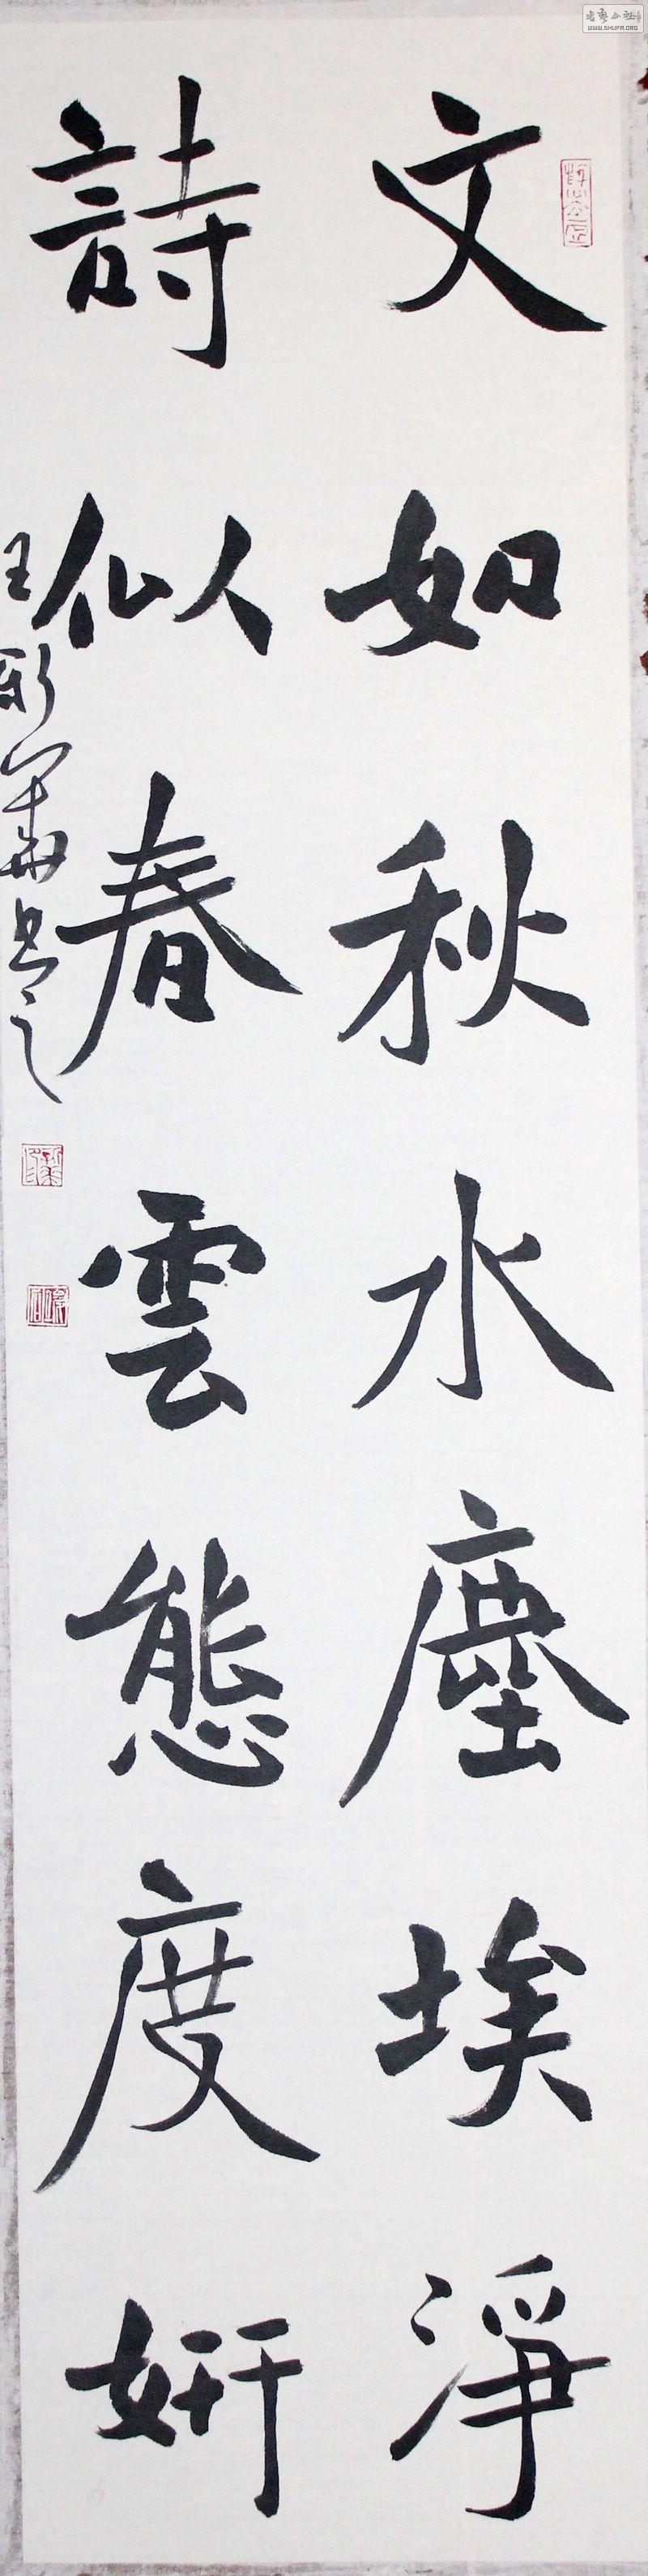 文如秋水塵埃淨
詩似春雲態度妍
王新華書之
WWW.SHUFA.ORG